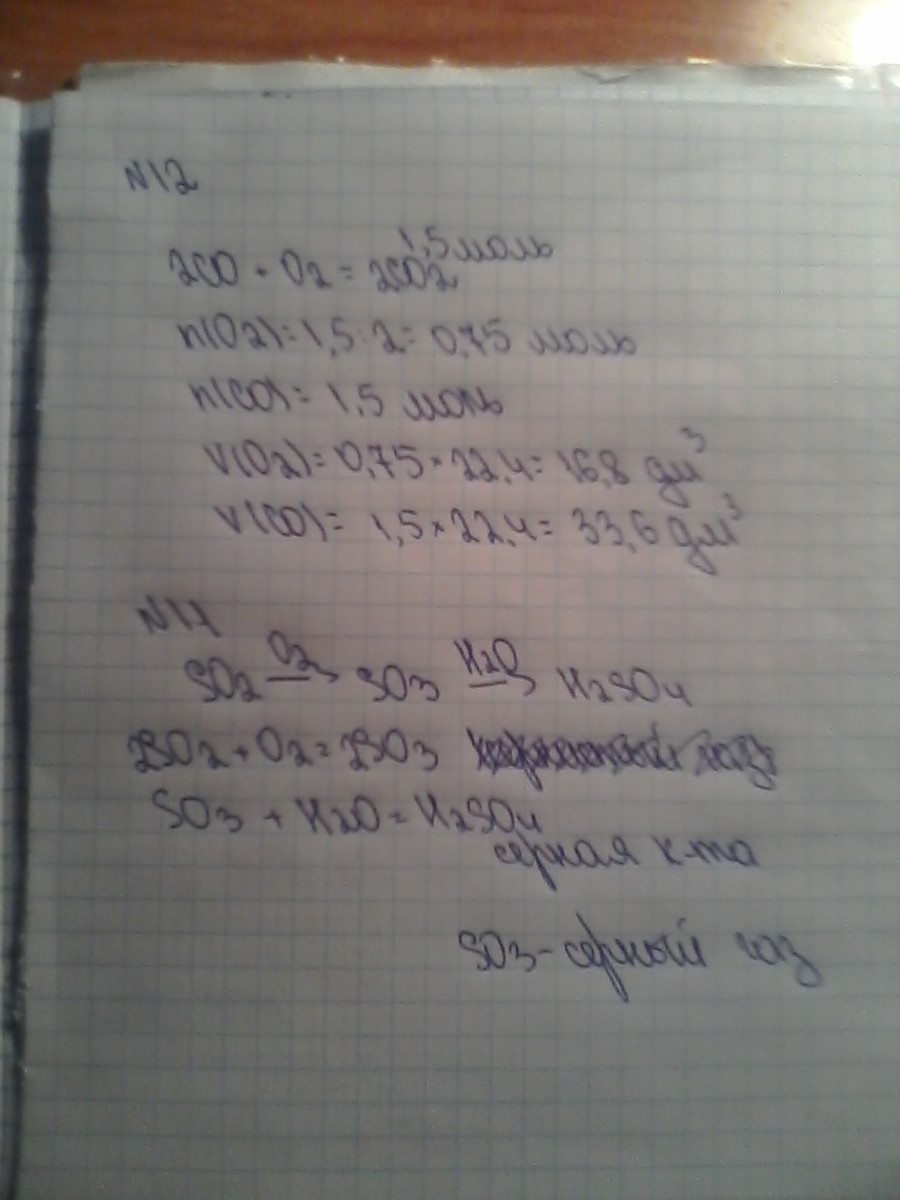 N12
1,5 моль
2CO + O2 = 2CO2
n(O2) = 1,5 : 2 = 0,75 моль
n(CO) = 1,5 моль
V(O2) = 0,75 × 22,4 = 16,8 дм³
V(CO) = 1,5 × 22,4 = 33,6 дм³
N14
SO2 O2→ SO3 H2O→ H2SO4
2SO2 + O2 = 2SO3
SO3 + H2O = H2SO4
серная к-та
SO3 - серный газ